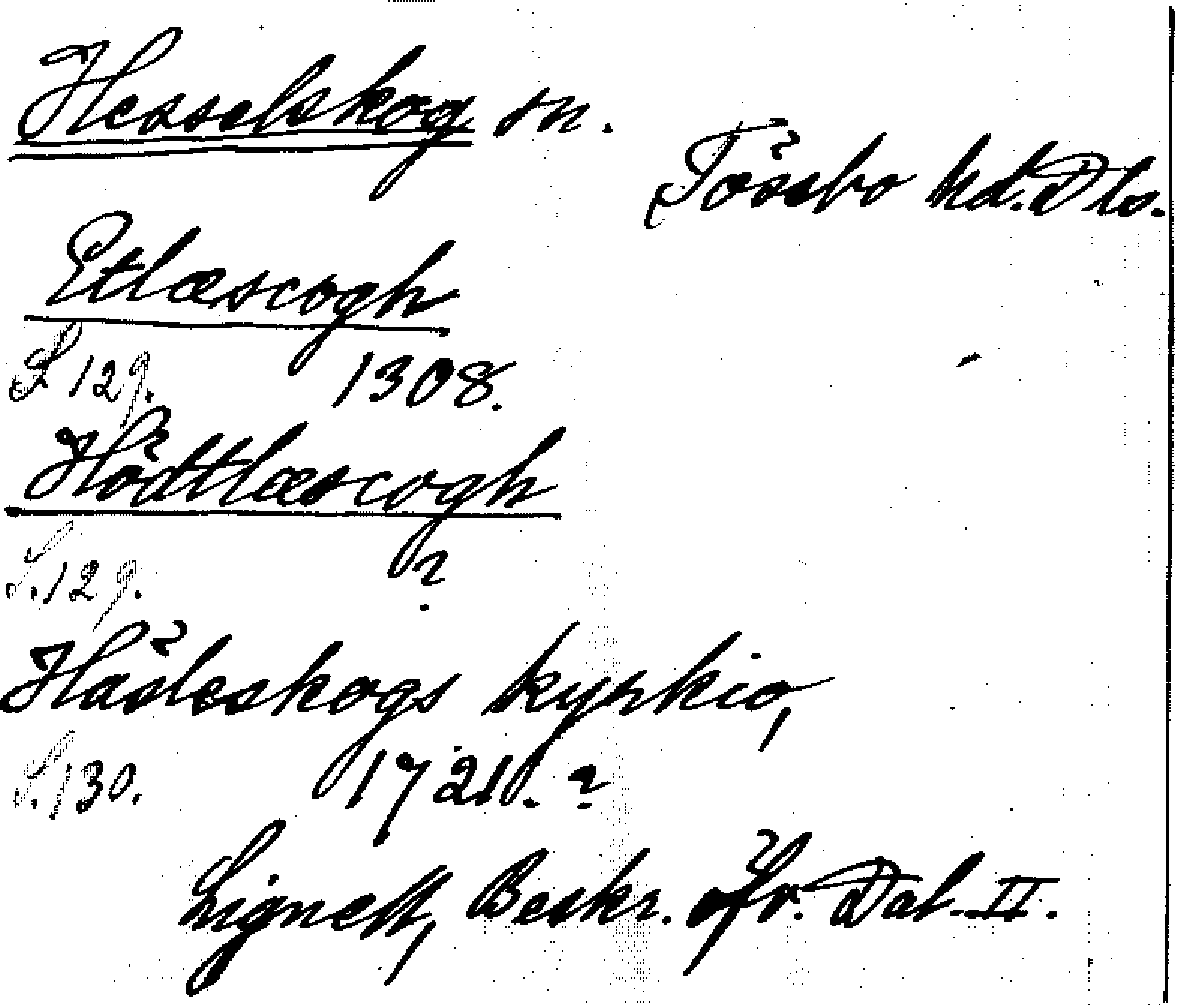 Hesselskog sn.
Tössbo hd. Dls.
Etlæscogh
S. 129. 1308.
Hådtlæscogh
S. 129. ?
Håsleskogs kyrkio,
S. 130. 1721. ?
Lignell, Beskr. öfv. Dal. II.